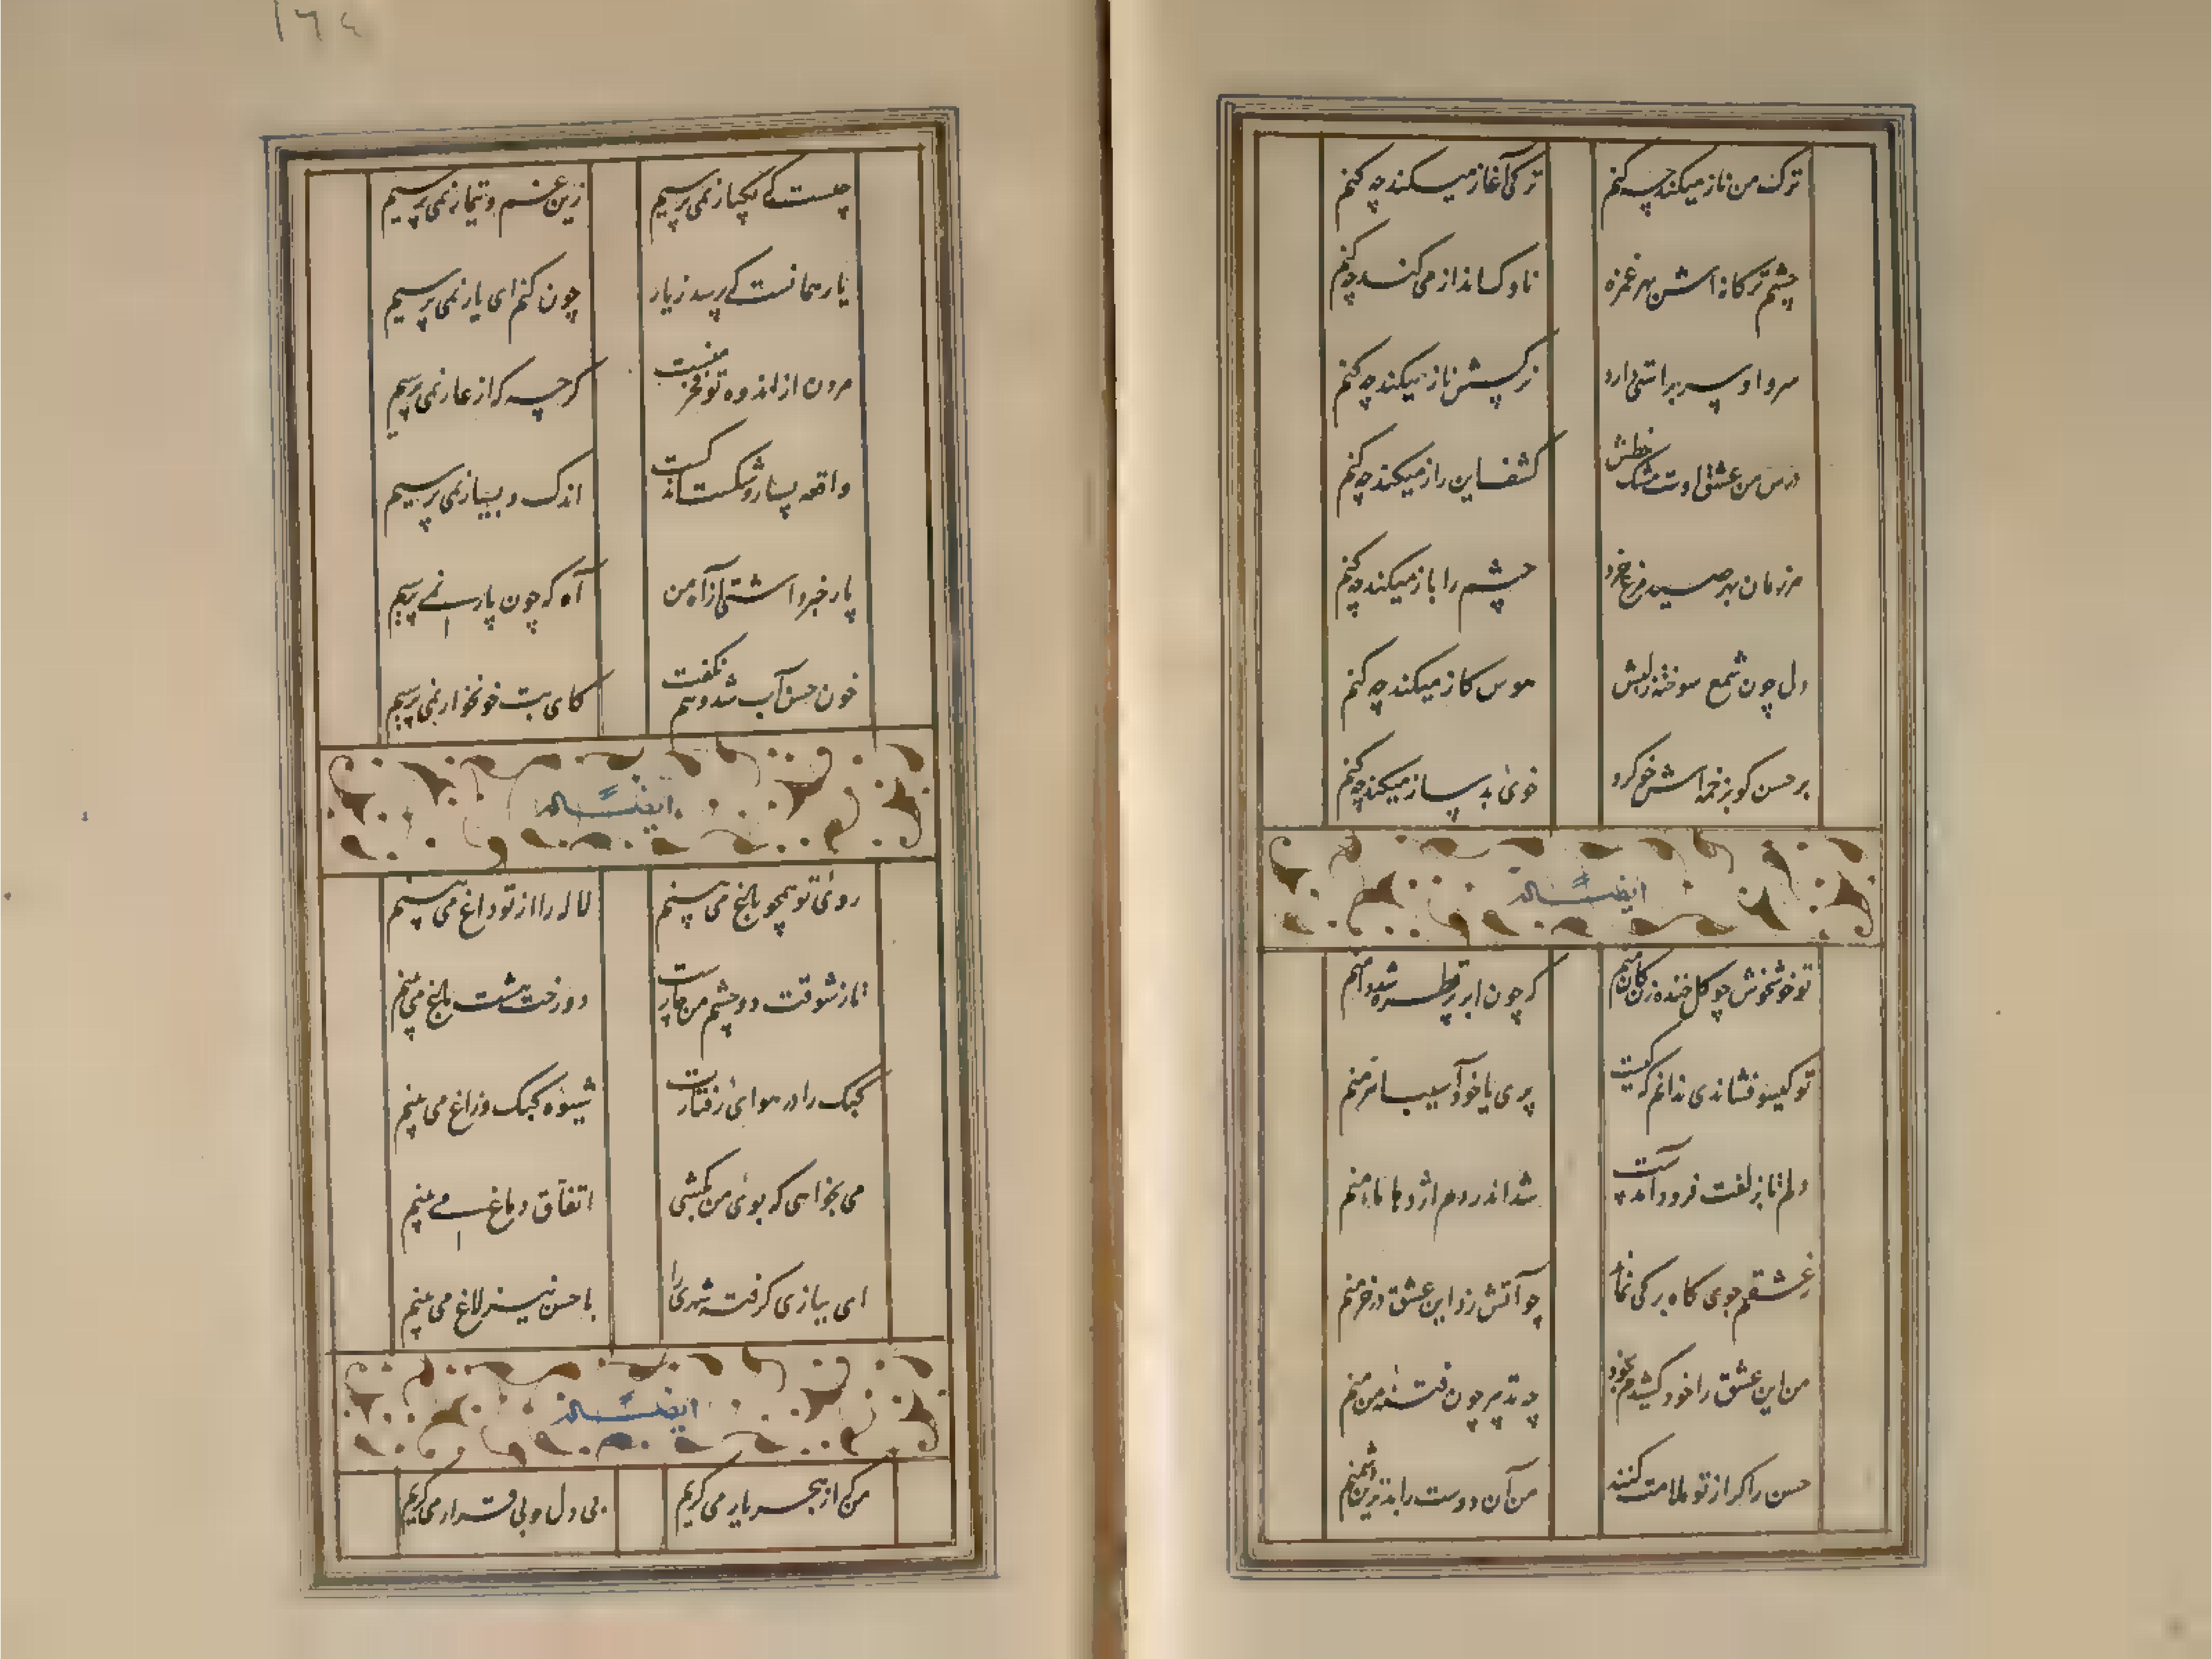 ترک من ناز میکند چه کنم
ترکی آغاز میکند چه کنم
چشم ترکانه اش بهر غمزه
ناوک انداز می کند چه کنم
سرو او سر براستی دارد
نرگسش ناز میکند چه کنم
درس من عشق اوست مشک خطش
کشف این راز میکند چه کنم
هر زمان بهر صید مرغ خرد
چشم را باز میکند چه کنم
دل چون شمع سوخته ز لبش
هوس کاز میکند چه کنم
بر حسن کو بزخمه اش خو کرد
خوئی بد ساز میکند چه کنم
ایضاً له
تو خوش خوش چو گل خنده زن
که چون ابر قطره
تو گیسو فشاندی ندانم که کیست
پری یا خود آسیب سر منم
دلم تا بزلفت فرود آمدست
شد اندر دم اژدها مامنم
ز عشقم جوی کاه برگی نماند
چو آتش زد این عشق در خرمنم
من این عشق را خود کشیدم بخود
چه تدبیر چون فتنه من منم
حسن را گر از تو ملامت کنند
من آن دوست را بدترین دشمنم
١٦٤
چیست که یکبار نمی پرسیم
زین غم و تیمار نمی پرسیم
یار همانست که پرسد ز یار
چون کنم ای یار نمی پرسیم
مردن از اندوه تو فخر منست
گرچه که از عار نمی پرسیم
واقعه بسیار و شکست اندکست
اندک و بسیار نمی پرسیم
پار خبر داشتی از آه من
آه که چون پار نمی پرسیم
خون حسن آب شد و هم نگفت
کای بت خونخوار نمی پرسیم
ایضاً له
روئی تو همچو باغ می بینم
لاله را از تو داغ می بینم
تا ز شوقت دو چشم من چارست
دو رخت هشت باغ می بینم
کبک را در هوائی رفتارت
شیوه کبک و زاغ می بینم
می بخواهی که بوئی من بکشی
اتفاق دماغ می بینم
ای ببازی گرفته شهری را
با حسن نیز لاغ می بینم
ایضاً له
من که از هجر یار می گریم
بی دل و بی قرار می گریم